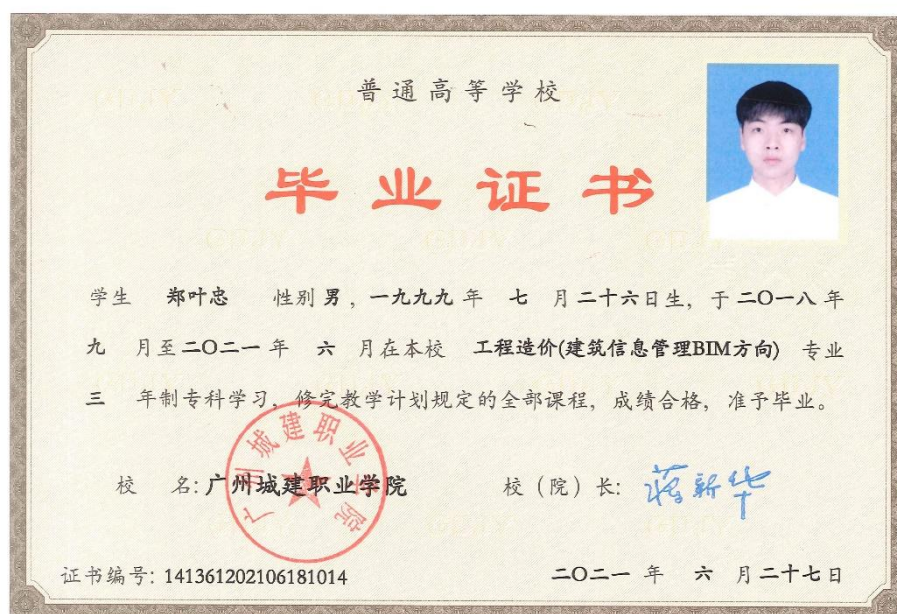 普通高等学校
毕业证书
学生 郑叶忠 性别 男，一九九九 年 七 月 二十六日生，于 二〇一八 年
九 月至 二〇二一 年 六 月在本校 工程造价(建筑信息管理BIM方向) 专业
三 年制专科学习，修完教学计划规定的全部课程，成绩合格，准予毕业。
校 名: 广州城建职业学院 校（院）长: 蒋新华
广州城建职业学院
证书编号: 141361202106181014 二〇二一 年 六 月 二十七日